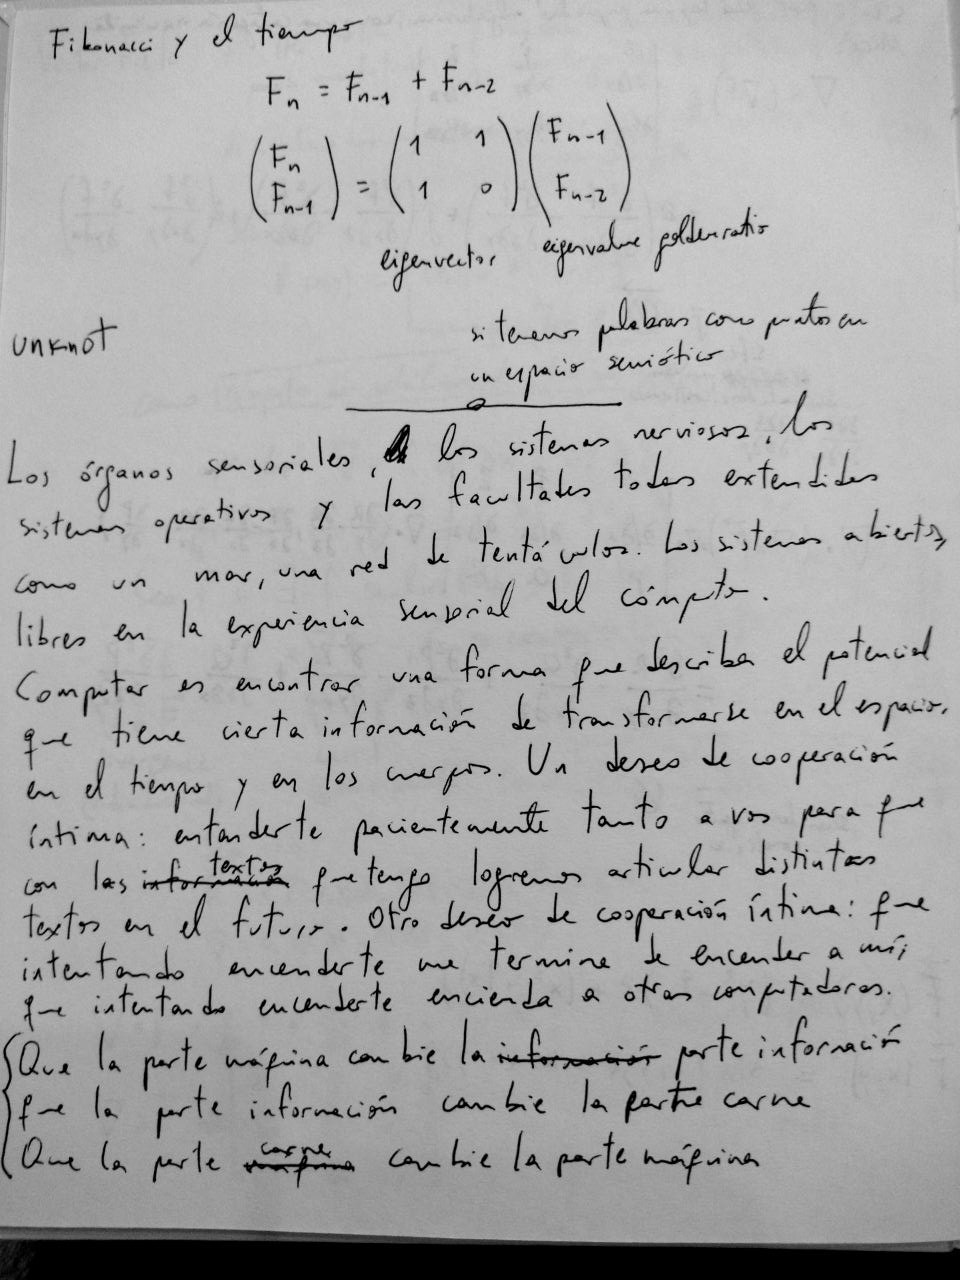 Fibonacci y el tiempo
Fn = Fn-1 + Fn-2
(Fn Fn-1) = (1 1 1 0) (Fn-1 Fn-2)
eigenvector eigenvalue golden ratio
unknot
si tenemos palabras como puntos en
un espacio semiótico
Los órganos sensoriales, los sistemas nerviosos, los
sistemas operativos y las facultades todas extendidas
como un mar, una red de tentáculos. Los sistemas abiertos,
libres en la experiencia sensorial del cómputo.
Computar es encontrar una forma que describa el potencial
que tiene cierta información de transformarse en el espacio,
en el tiempo y en los cuerpos. Un deseo de cooperación
íntima: entenderte pacientemente tanto a vos para que
con los información textos que tengo logremos articular distintos
textos en el futuro. Otro deseo de cooperación íntima: que
intentando encenderte me termine de encender a mí;
que intentando encenderte encienda a otras computadoras.
Que la parte máquina cambie la información parte información
que la parte información cambie la parte carne
Que la parte máquina carne cambie la parte máquina